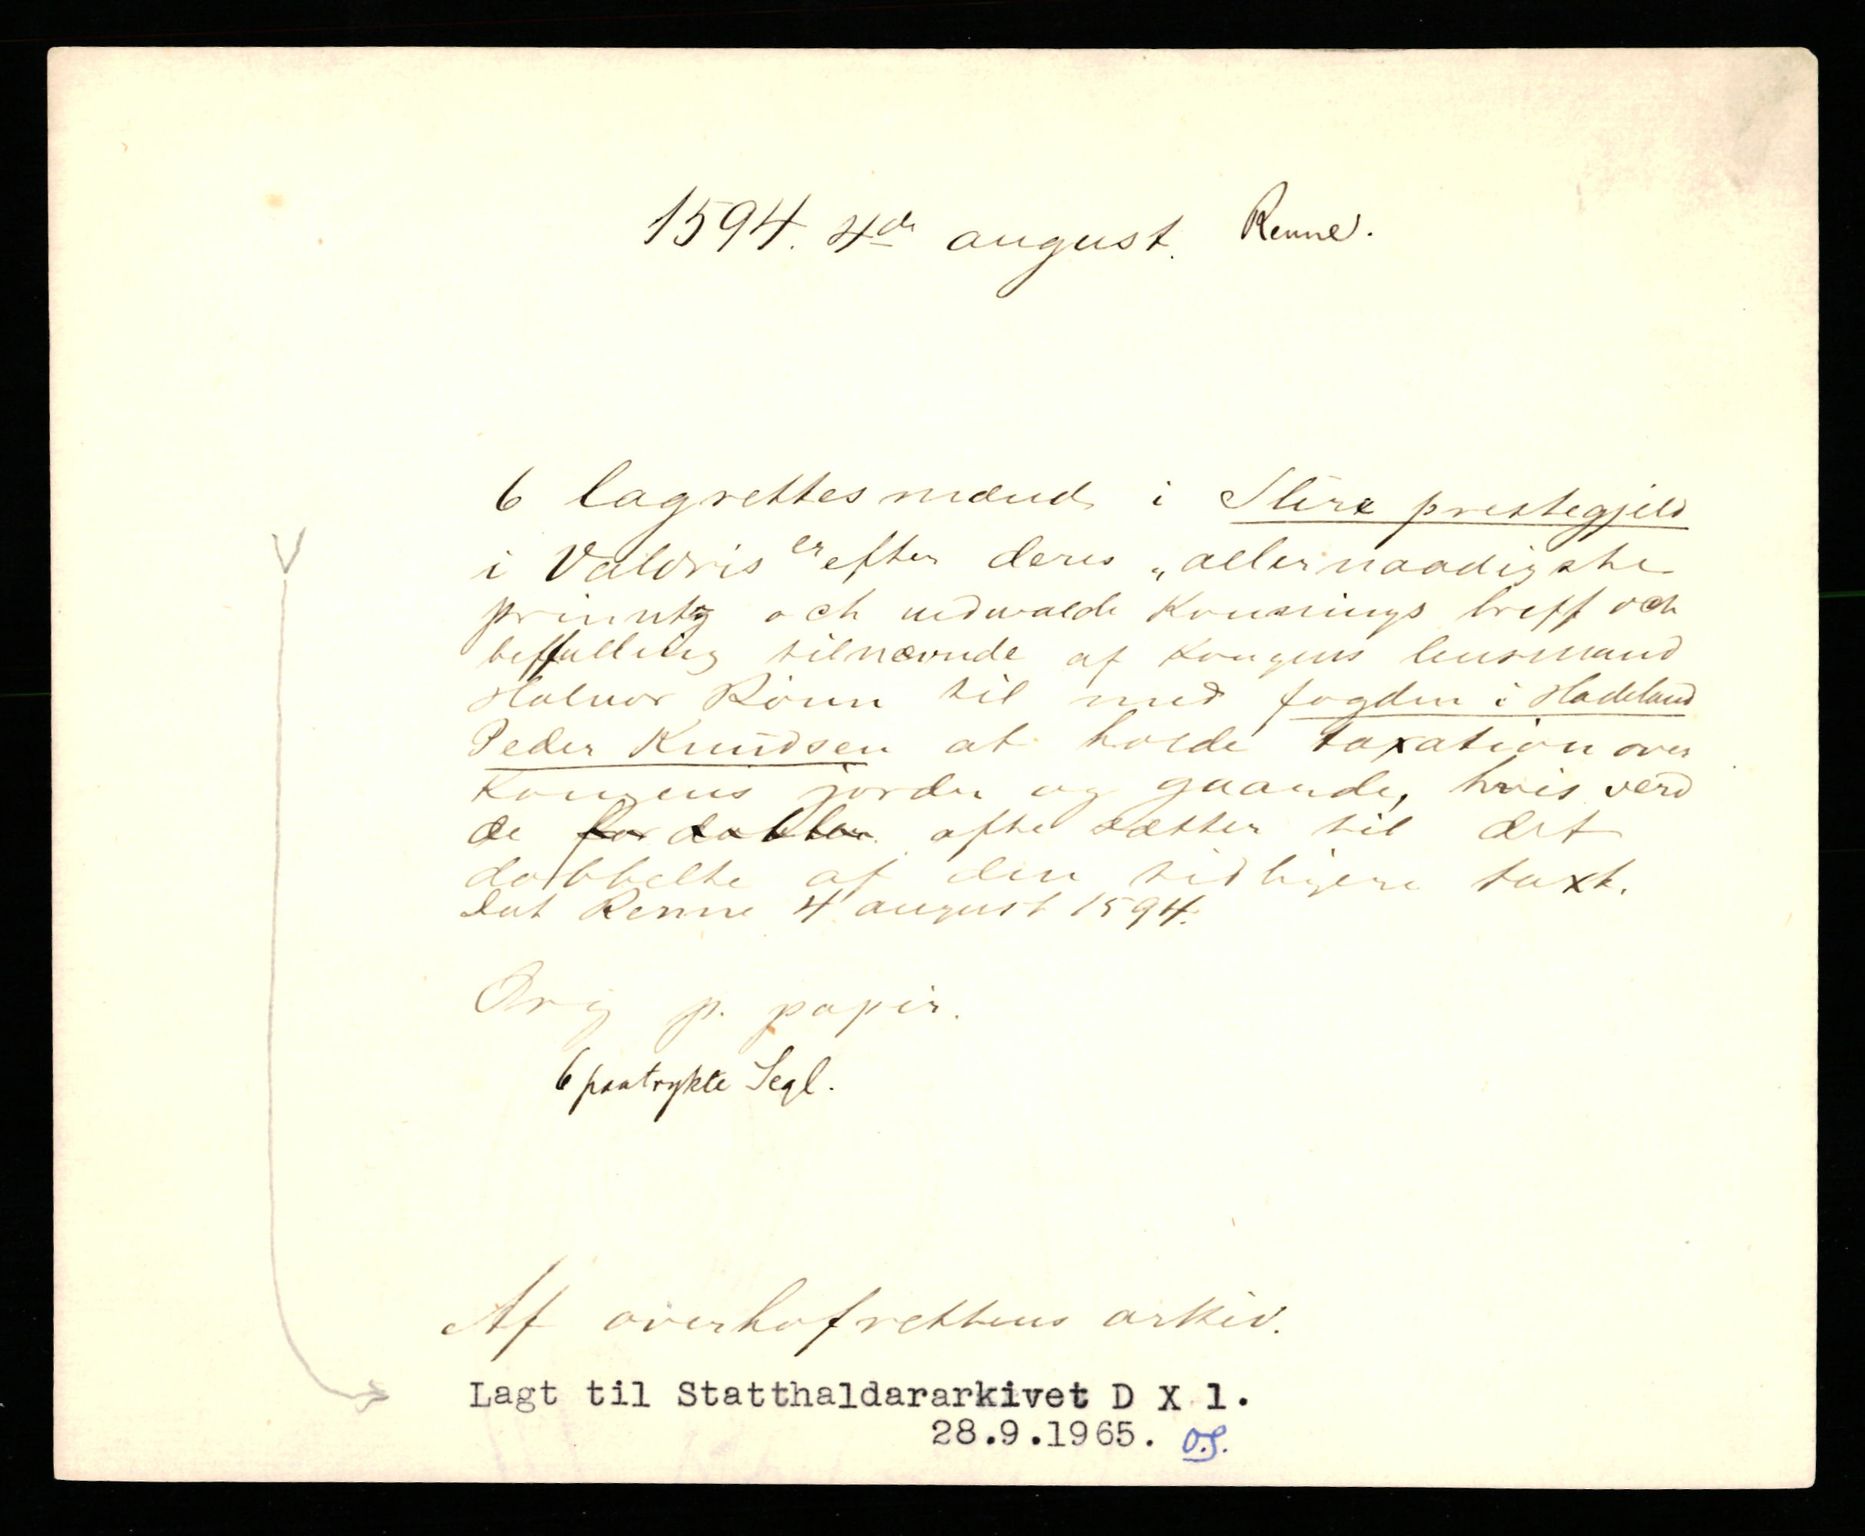 1594. 4de august. Renne.
6 lagrettesmænd i Slire prestegjeld
i Valdris er efter deres „allernaadigste
printz och udwalde Konnings breff och
beffalling tilnævnde af Kongens lensmand
Halvor Rønn til med fogden i Hadeland
Peder Knudsen at holde taxation over
Kongens jorder og gaarde, hvis verd
de for dobler ofte sætter til det
dobbelte af den tidligere taxt.
Dat Renne 4 august 1594.
Orig p. papir.
6 paatrykte Segl.
Af overhofrettens arkiv.
Lagt til Statthaldararkivet D X 1.
28.9.1965. O.S.